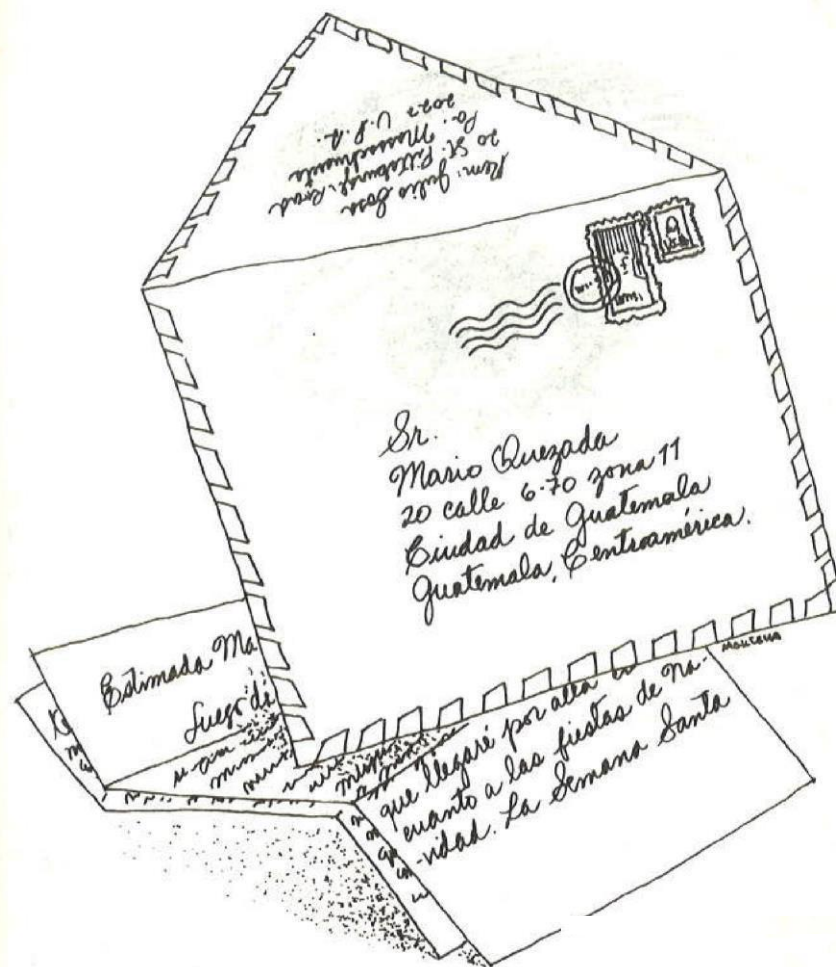 Rem: Julio Sosa
20 St. Pittsburgh Road
Pa. Massachusetts
2027 U.S.A.
Sr.
Mario Quezada
20 calle 6-70 zona 11
Ciudad de Guatemala
Guatemala, Centroamérica.
Estimada Ma
Luego de
que llegaré por allá
cuanto a las fiestas de na-
-vidad. La Semana Santa